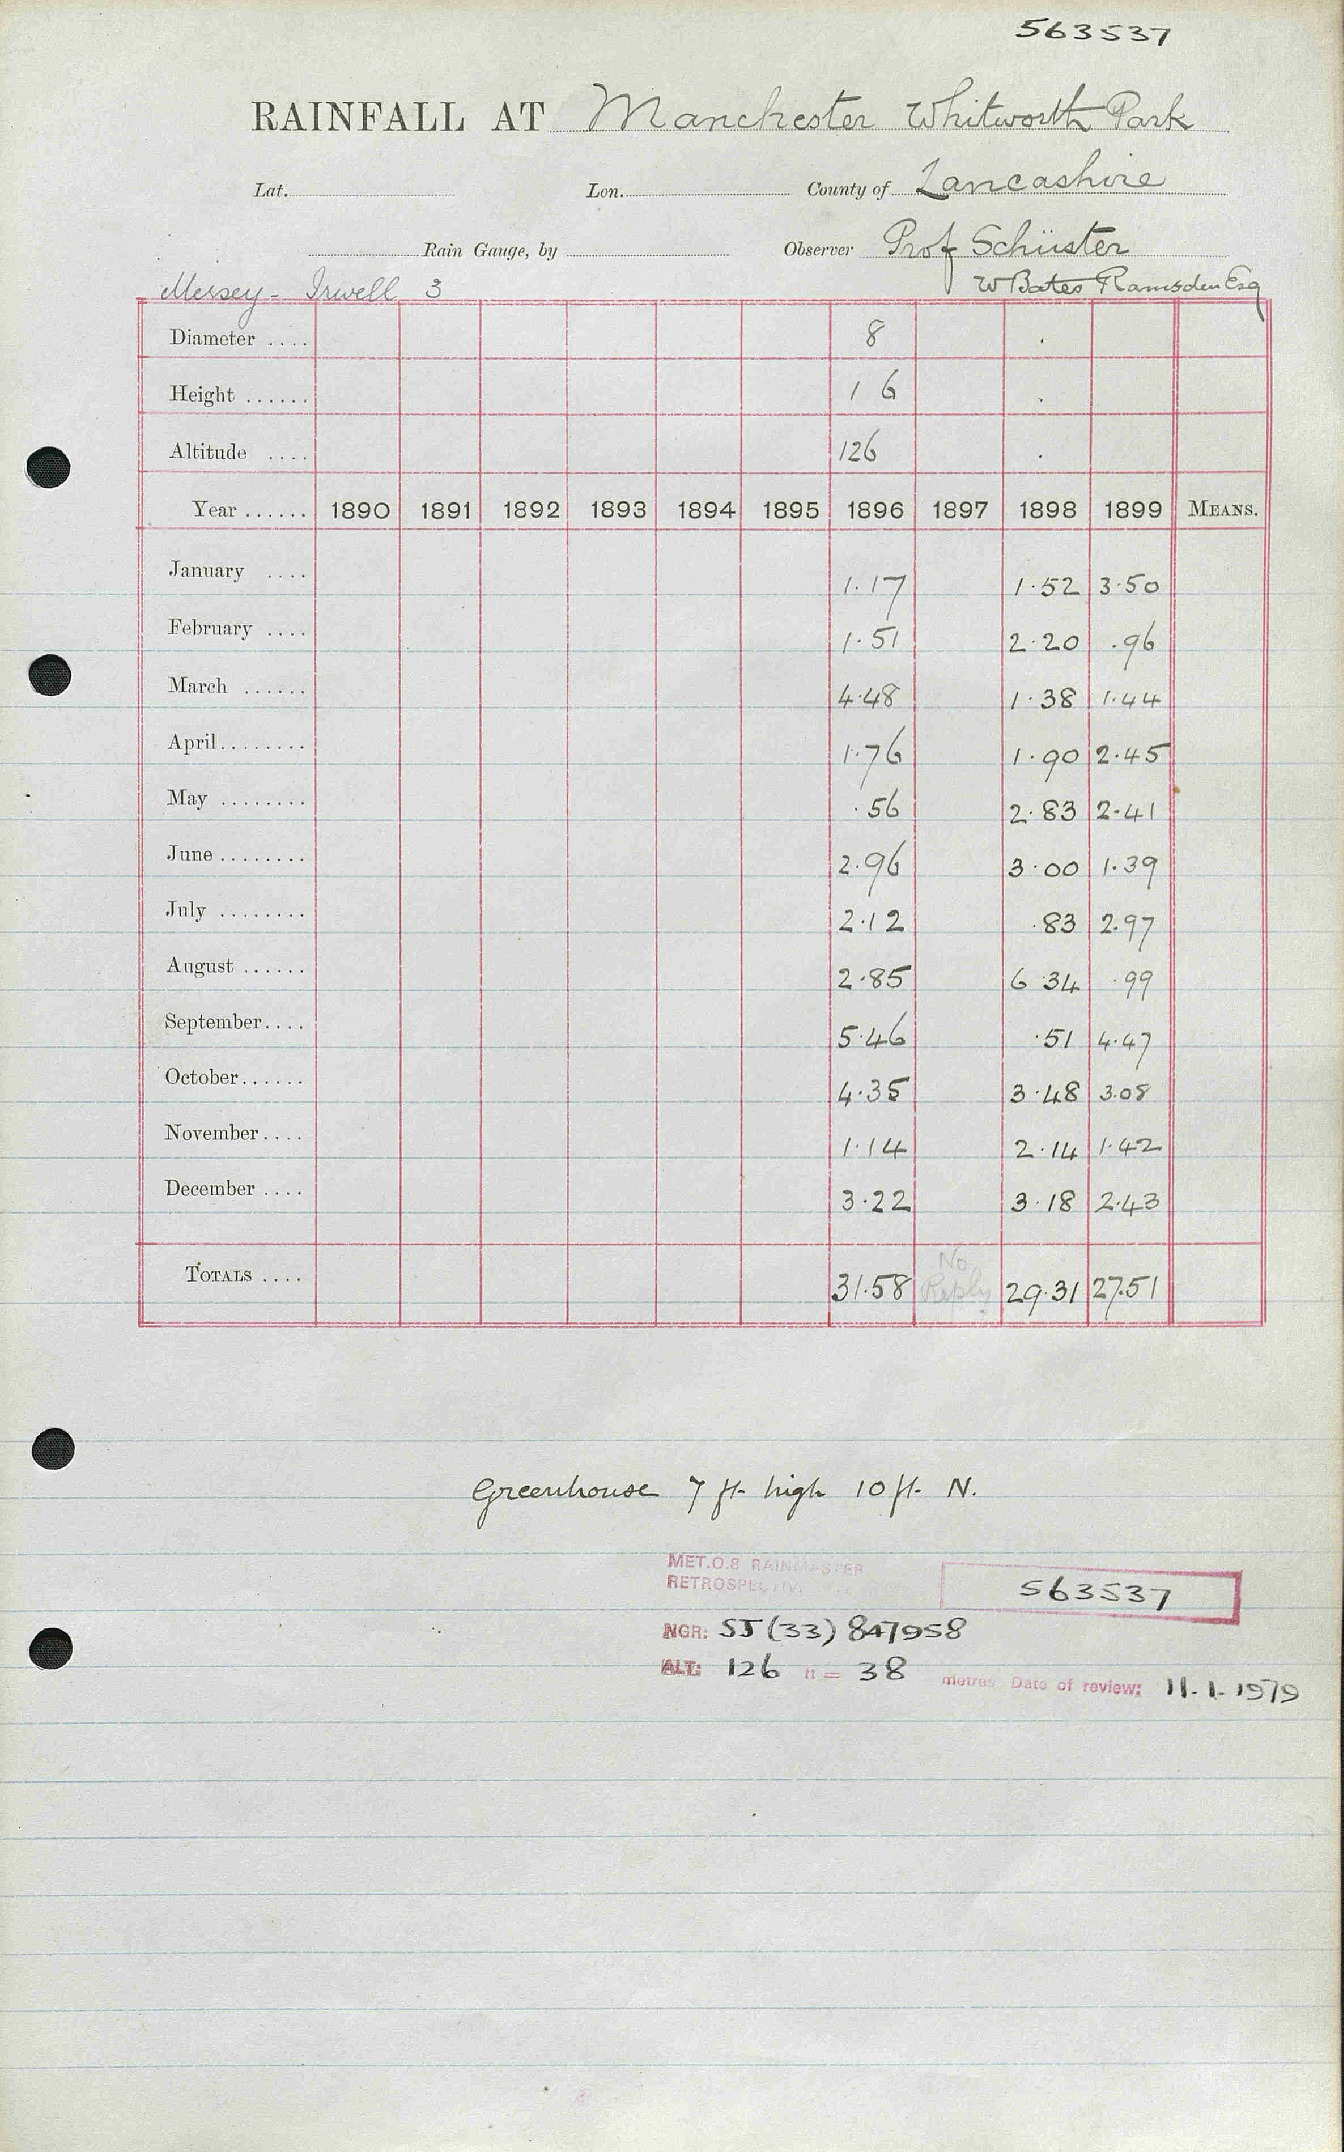 563537
RAINFALL AT Manchester Whitworth Park
Lat. Lon. County of Lancashire
Rain Gauge, by Observer Prof Schüster
Mersey - Irwell 3 W Bates Ramsden Esq
Diameter .... 8
Height ...... 1 6
Altitude .... 126
Year ...... 1890 1891 1892 1893 1894 1895 1896 1897 1898 1899 MEANS.
January .... 1.17 1.52 3.50
February .... 1.51 2.20 .96
March ...... 4.48 1.38 1.44
April........ 1.76 1.90 2.45
May ........ .56 2.83 2.41
June ........ 2.96 3.00 1.39
July ........ 2.12 .83 2.97
August ...... 2.85 6 34 .99
September.... 5.46 .51 4.47
October...... 4.35 3.48 3.08
November.... 1.14 2.14 1.42
December .... 3.22 3.18 2.43
TOTALS .... 31.58 No Reply 29.31 27.51
Greenhouse 7 ft. high 10 ft. N.
MET.O.8 RAINMASTER
RETROSPECTIVE
563537
NGR: SJ (33) 847958
ALT: 126 ft = 38 metres Date of review: 11.1.1979